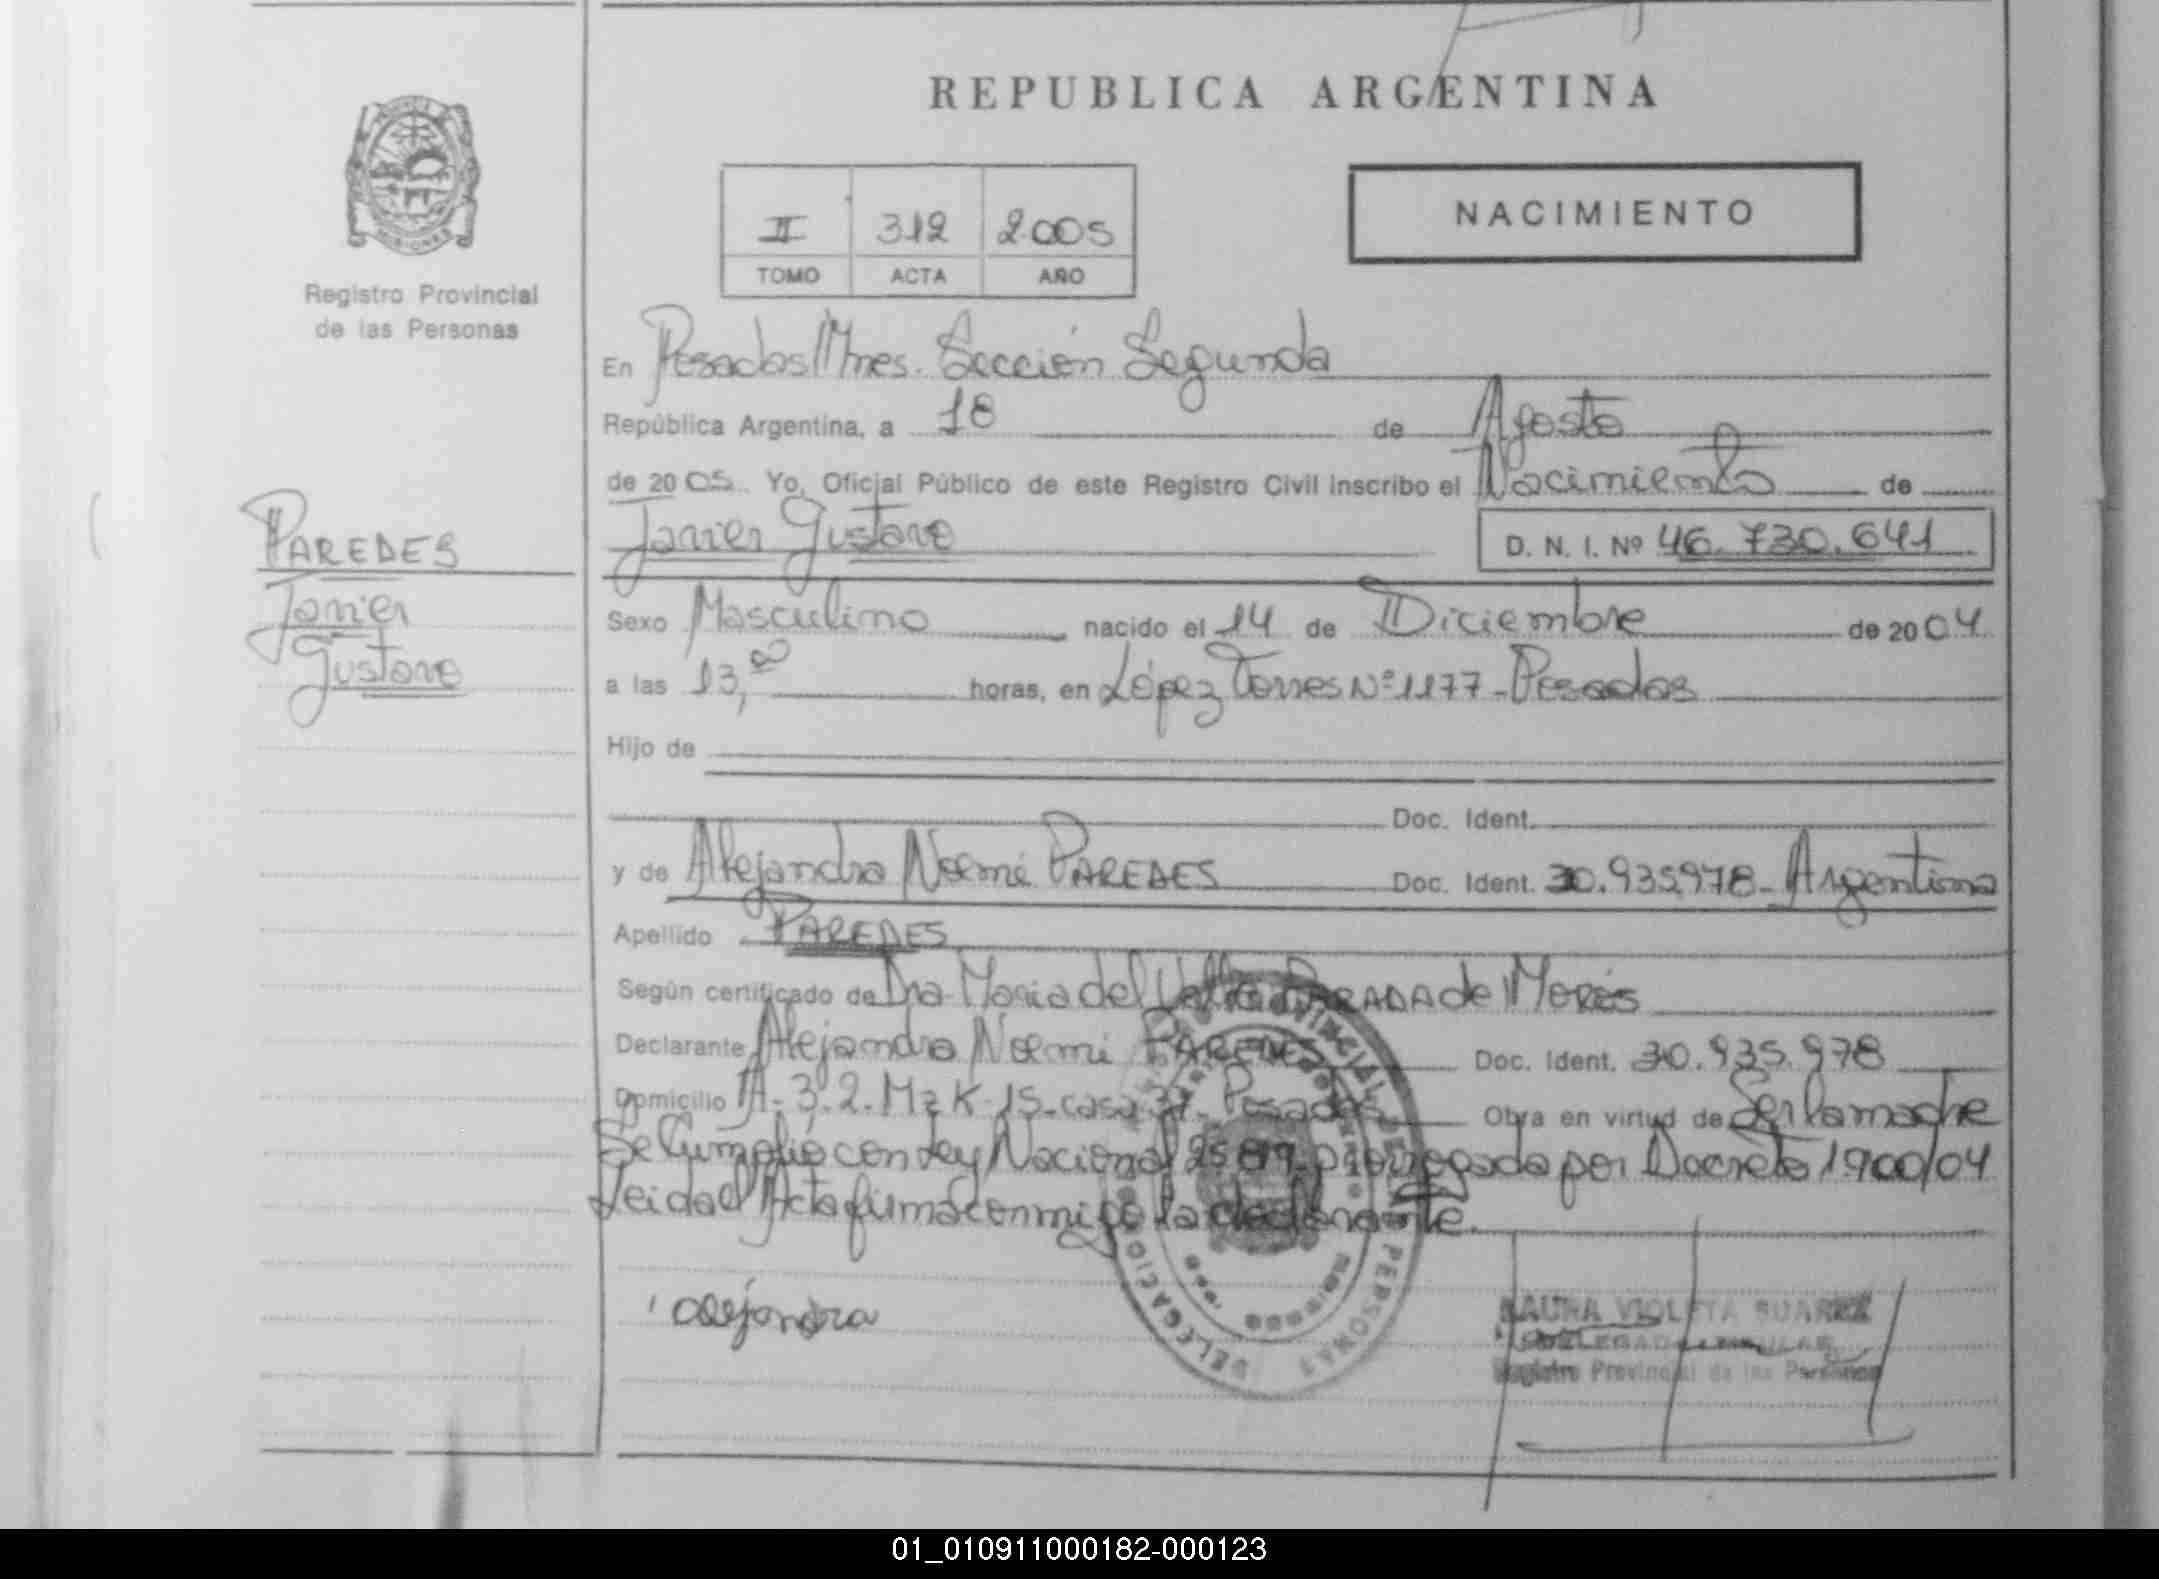 REPUBLICA ARGENTINA
MISIONES
Registro Provincial
de las Personas
II 312 2005
TOMO ACTA AÑO
NACIMIENTO
En Posadas Mnes. Sección Segunda
República Argentina, a 18 de Agosto
de 2005 Yo, Oficial Público de este Registro Civil inscribo el Nacimiento de
Javier Gustavo D. N. I. Nº 46.730.641
PAREDES
Javier
Gustavo
Sexo Masculino nacido el 14 de Diciembre de 2004
a las 13,00 horas, en López Torres Nº 1177 - Posadas
Hijo de
Doc. Ident.
y de Alejandra Noemi PAREDES Doc. Ident. 30.935.978 - Argentina
Apellido PAREDES
Según certificado de Dra. Maria del Valle PARADA de MORES
Declarante Alejandra Noemi PAREDES Doc. Ident. 30.935.978
Domicilio A-3.2. Mz K-15-casa Posadas Obra en virtud de Ser la madre
Se Cumplio con Ley Nacional 25819 prorrogada por Decreto 1900/04
Leida el Acta firma conmigo la declarante.
alejandra
LAURA VIOLETA SUAREZ
DELEGADA TITULAR
Registro Provincial de las Personas
01_010911000182-000123